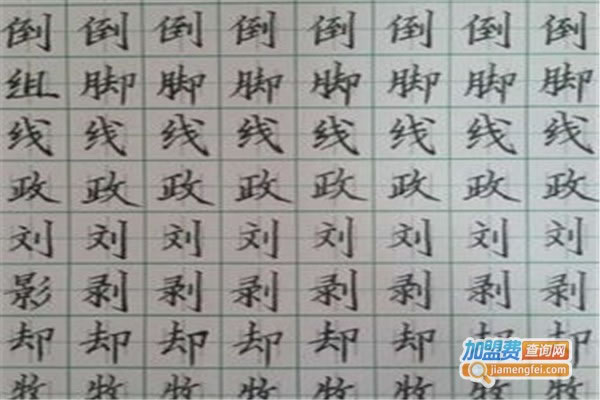 倒倒倒倒倒倒倒倒
组脚脚脚脚脚脚脚
线线线线线线线线
政政政政政政政政
刘刘刘刘刘刘刘刘
影剥剥剥剥剥剥剥
却却却却却却却却
牧牧牧牧牧牧
加盟费查询网
jiamengfei.com